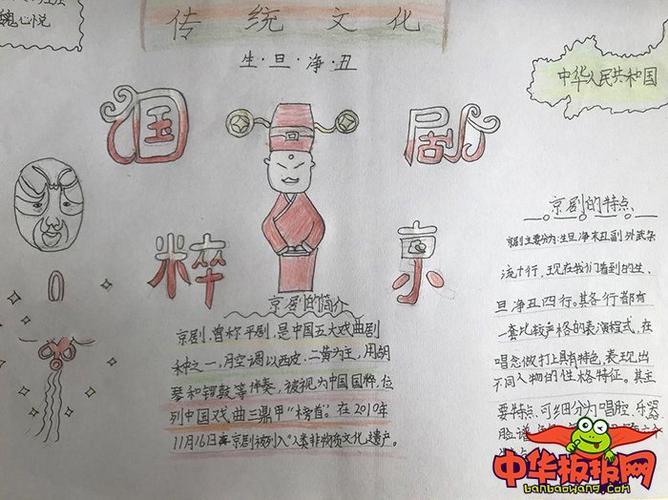 魏心悦
传统文化
生·旦·净·丑
中华人民共和国
国
剧
粹
京
京剧的简介
京剧,曾称平剧,是中国五大戏曲剧
种之一,腔调以西皮、二黄为主,用胡
琴和锣鼓等伴奏,被视为中国国粹,位
列中国戏曲三鼎甲"榜首"。在2010年
11月16日京剧被列入"人类非物质文化遗产。
京剧的特点
京剧主要分为:生旦净末丑副外武杂
流十行,现在我们看到的生、
旦净丑四行。其各行都有
一套比较严格的表演程式,在
唱念做打上具有特色,表现出
不同人物的性格特征。其主
要特点,可细分为唱腔、乐器
脸谱
中华板报网
banbaowang.com